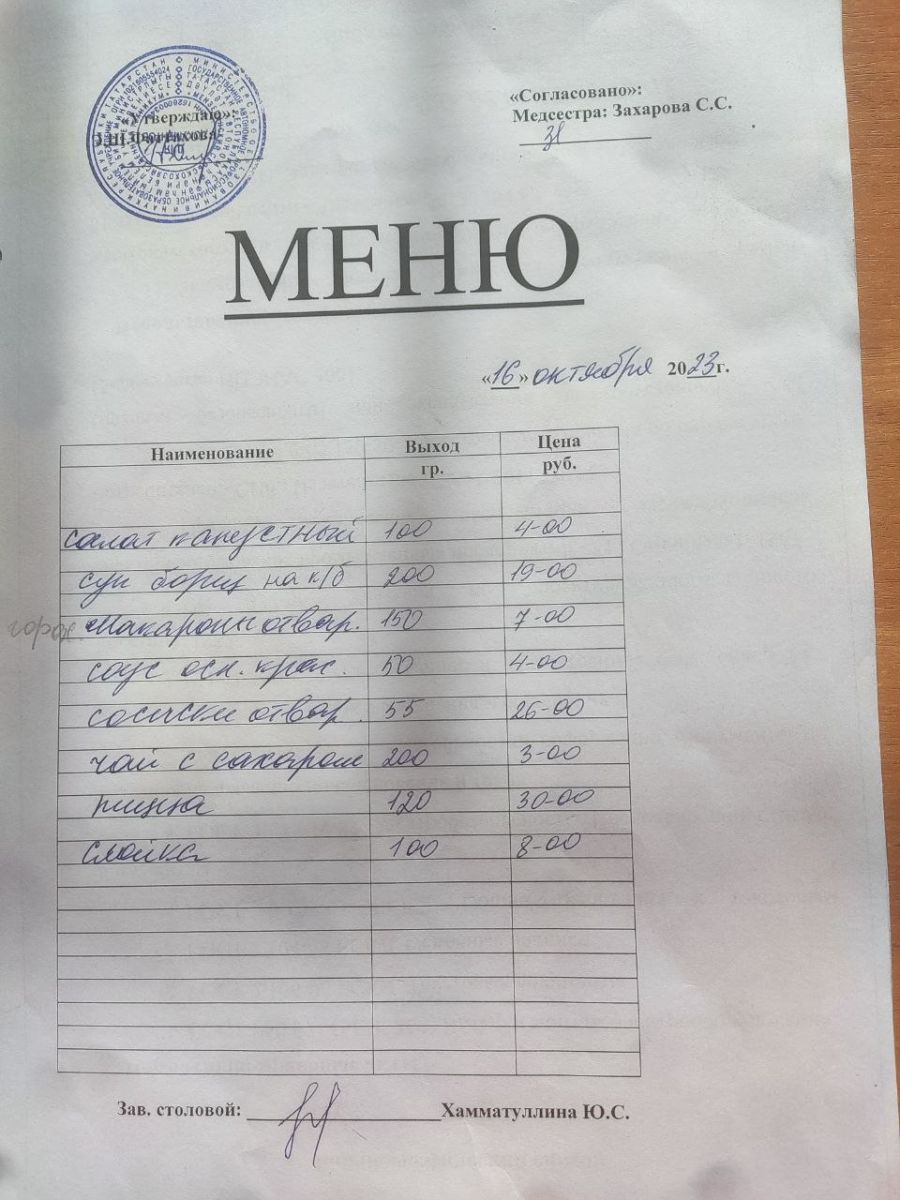 «Утверждаю»:
Фаттахова
«Согласовано»:
Медсестра: Захарова С.С.
МЕНЮ
«16» октября 2023г.
Наименование Выход Цена
гр. руб.
салат капустный 100 4-00
суп борщ на к/б 200 19-00
горох макароны отвар. 150 7-00
соус осн. крас. 50 4-00
сосиски отвар. 55 26-00
чай с сахаром 200 3-00
пицца 120 30-00
слойка 100 8-00
Зав. столовой: Хамматуллина Ю.С.